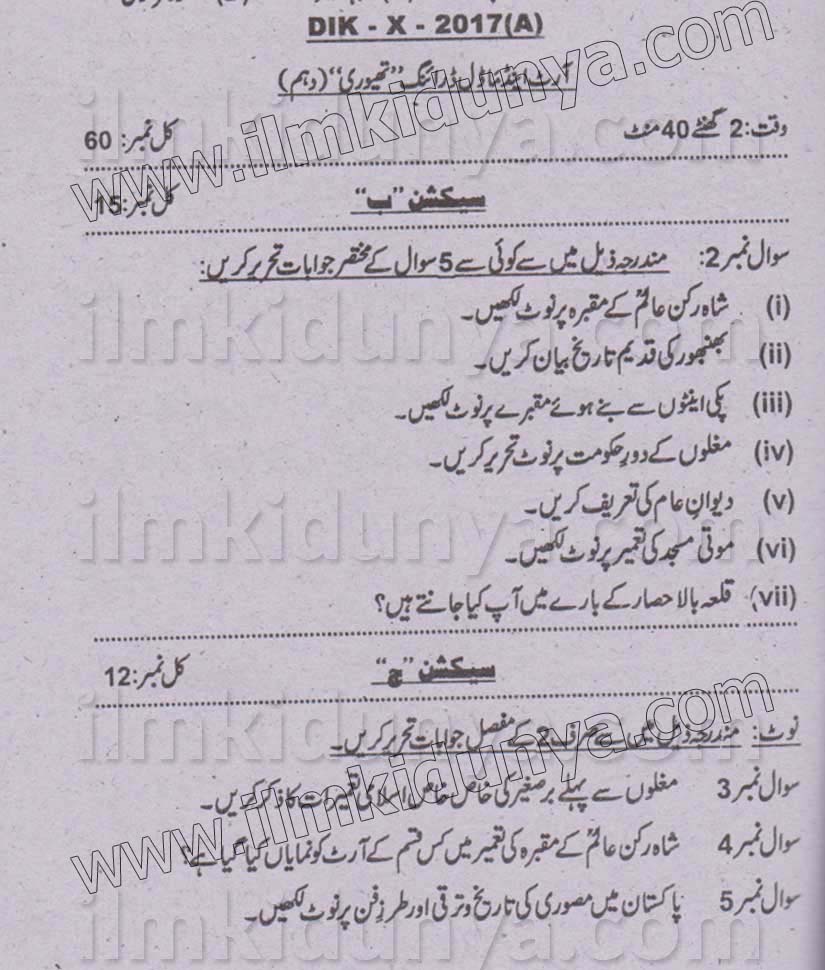 DIK - X - 2017(A)
آرٹ اینڈ ماڈل ڈرائنگ "تھیوری" (دہم)
وقت: 2 گھنٹے 40 منٹ کل نمبر: 60
سیکشن "ب" کل نمبر: 15
سوال نمبر 2: مندرجہ ذیل میں سے کوئی سے 5 سوال کے مختصر جوابات تحریر کریں:
(i) شاہ رکن عالمؒ کے مقبرہ پر نوٹ لکھیں۔
(ii) بھنبھور کی قدیم تاریخ بیان کریں۔
(iii) پکی اینٹوں سے بنے ہوئے مقبرے پر نوٹ لکھیں۔
(iv) مغلوں کے دورِ حکومت پر نوٹ تحریر کریں۔
(v) دیوانِ عام کی تعریف کریں۔
(vi) موتی مسجد کی تعمیر پر نوٹ لکھیں۔
(vii) قلعہ بالا حصار کے بارے میں آپ کیا جانتے ہیں؟
سیکشن "ج" کل نمبر: 12
نوٹ: مندرجہ ذیل میں سے صرف کے مفصل جوابات تحریر کریں۔
سوال نمبر 3 مغلوں سے پہلے برصغیر کی خاص خاص اسلامی تعمیرات کا ذکر کریں۔
سوال نمبر 4 شاہ رکن عالمؒ کے مقبرہ کی تعمیر میں کس قسم کے آرٹ کو نمایاں کیا گیا ہے؟
سوال نمبر 5 پاکستان میں مصوری کی تاریخ و ترقی اور طرزِ فن پر نوٹ لکھیں۔
www.ilmkidunya.com
www.ilmkidunya.com
ilmkidunya.com
ilmkidunya.com
ilmkidunya.com
ilmkidunya.com
ilmkidunya.com